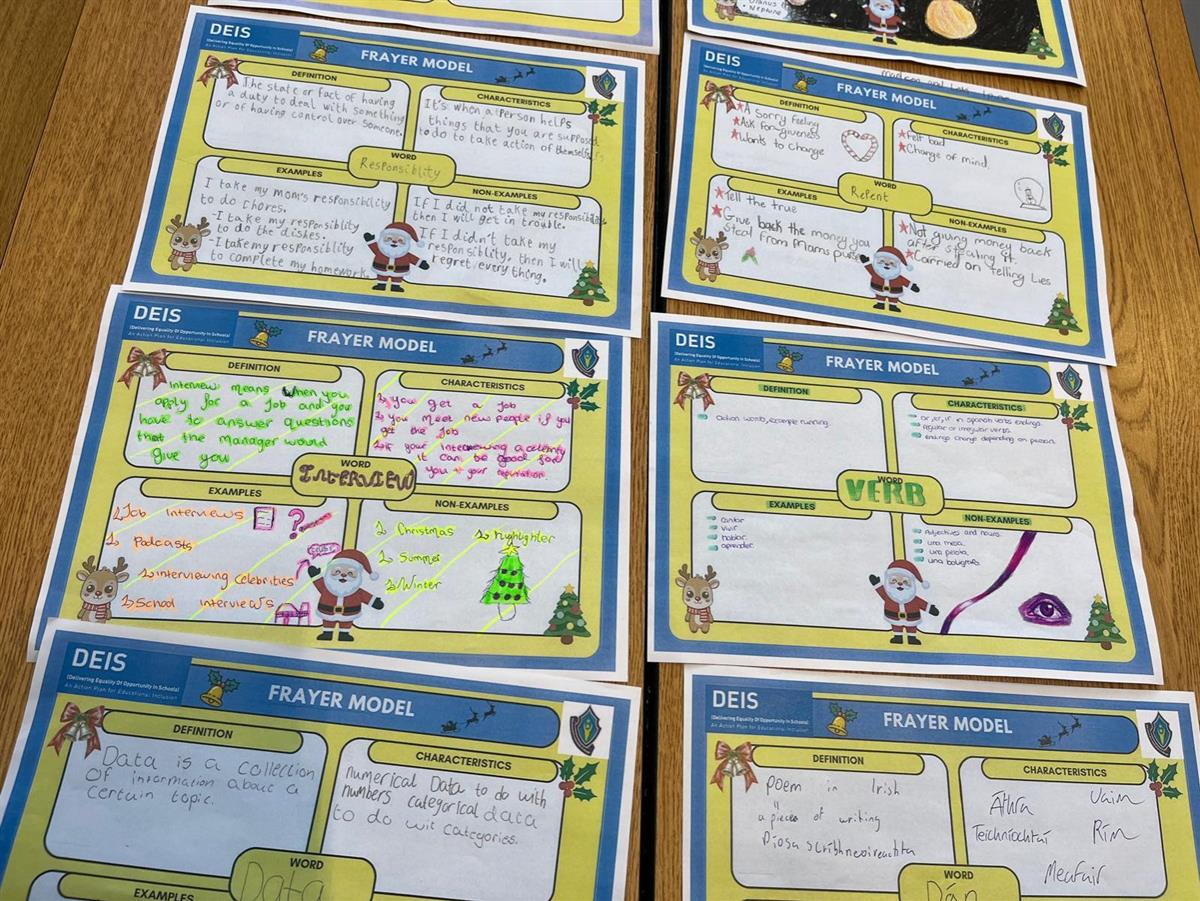 Uranus
Neptune
DEIS
(Delivering Equality Of Opportunity In Schools)
An Action Plan for Educational Inclusion
FRAYER MODEL
DEFINITION
The state or fact of having
a duty to deal with something
or of having control over someone.
CHARACTERISTICS
It's when a person helps
things that you are supposed
to do to take action of themself
WORD
Responsiblity
EXAMPLES
I take my mom's responsibility
to do chores.
-I take my responsiblity
to do the dishes.
-I take my responsiblity
to complete my homework.
NON-EXAMPLES
If I did not take my responsibility
then I will get in trouble.
If I didn't take my
responsiblity, then I will
regret every thing.
DEIS
FRAYER MODEL
DEFINITION
A Sorry feeling
Ask forgiveness
Wants to change
CHARACTERISTICS
Felt bad
Change of mind.
WORD
Repent
EXAMPLES
Tell the true
Give back the money you
steal from Mams purse
NON-EXAMPLES
Not giving money back
after stealing it.
Carried on telling Lies
DEIS
(Delivering Equality Of Opportunity In Schools)
An Action Plan for Educational Inclusion
FRAYER MODEL
DEFINITION
Interview means when you
apply for a Job and you
have to answer questions
that the manager would
give you
CHARACTERISTICS
You get a Job
You meet new people if you
get the Job
If your interviewing a celebrity
it can be good for
you + your reputation.
WORD
INTERVIEW
EXAMPLES
Job Interviews
Podcasts
interviewing celebrities
School interviews
NON-EXAMPLES
Christmas
Highlighter
Summer
Winter
DEIS
(Delivering Equality Of Opportunity In Schools)
An Action Plan for Educational Inclusion
FRAYER MODEL
DEFINITION
Action words, example running.
CHARACTERISTICS
ar, er, ir in Spanish verbs endings.
Regular or irregular verbs.
Endings change depending on person.
WORD
VERB
EXAMPLES
cantar
vivir
hablar
aprender
NON-EXAMPLES
Adjectives and nouns.
una mesa.
una pelota.
una bolígrafo.
DEIS
(Delivering Equality Of Opportunity In Schools)
An Action Plan for Educational Inclusion
FRAYER MODEL
DEFINITION
Data is a collection
Of information about a
certain topic.
CHARACTERISTICS
numerical Data to do with
numbers categorical data
to do wit categories.
WORD
Data
EXAMPLES
DEIS
(Delivering Equality Of Opportunity In Schools)
An Action Plan for Educational Inclusion
FRAYER MODEL
DEFINITION
Poem in Irish
a pieces of writing
Píosa scríbhneoireachta
CHARACTERISTICS
Áthra Uaim
Teichníochtaí Rím
Meafair
WORD
Dán